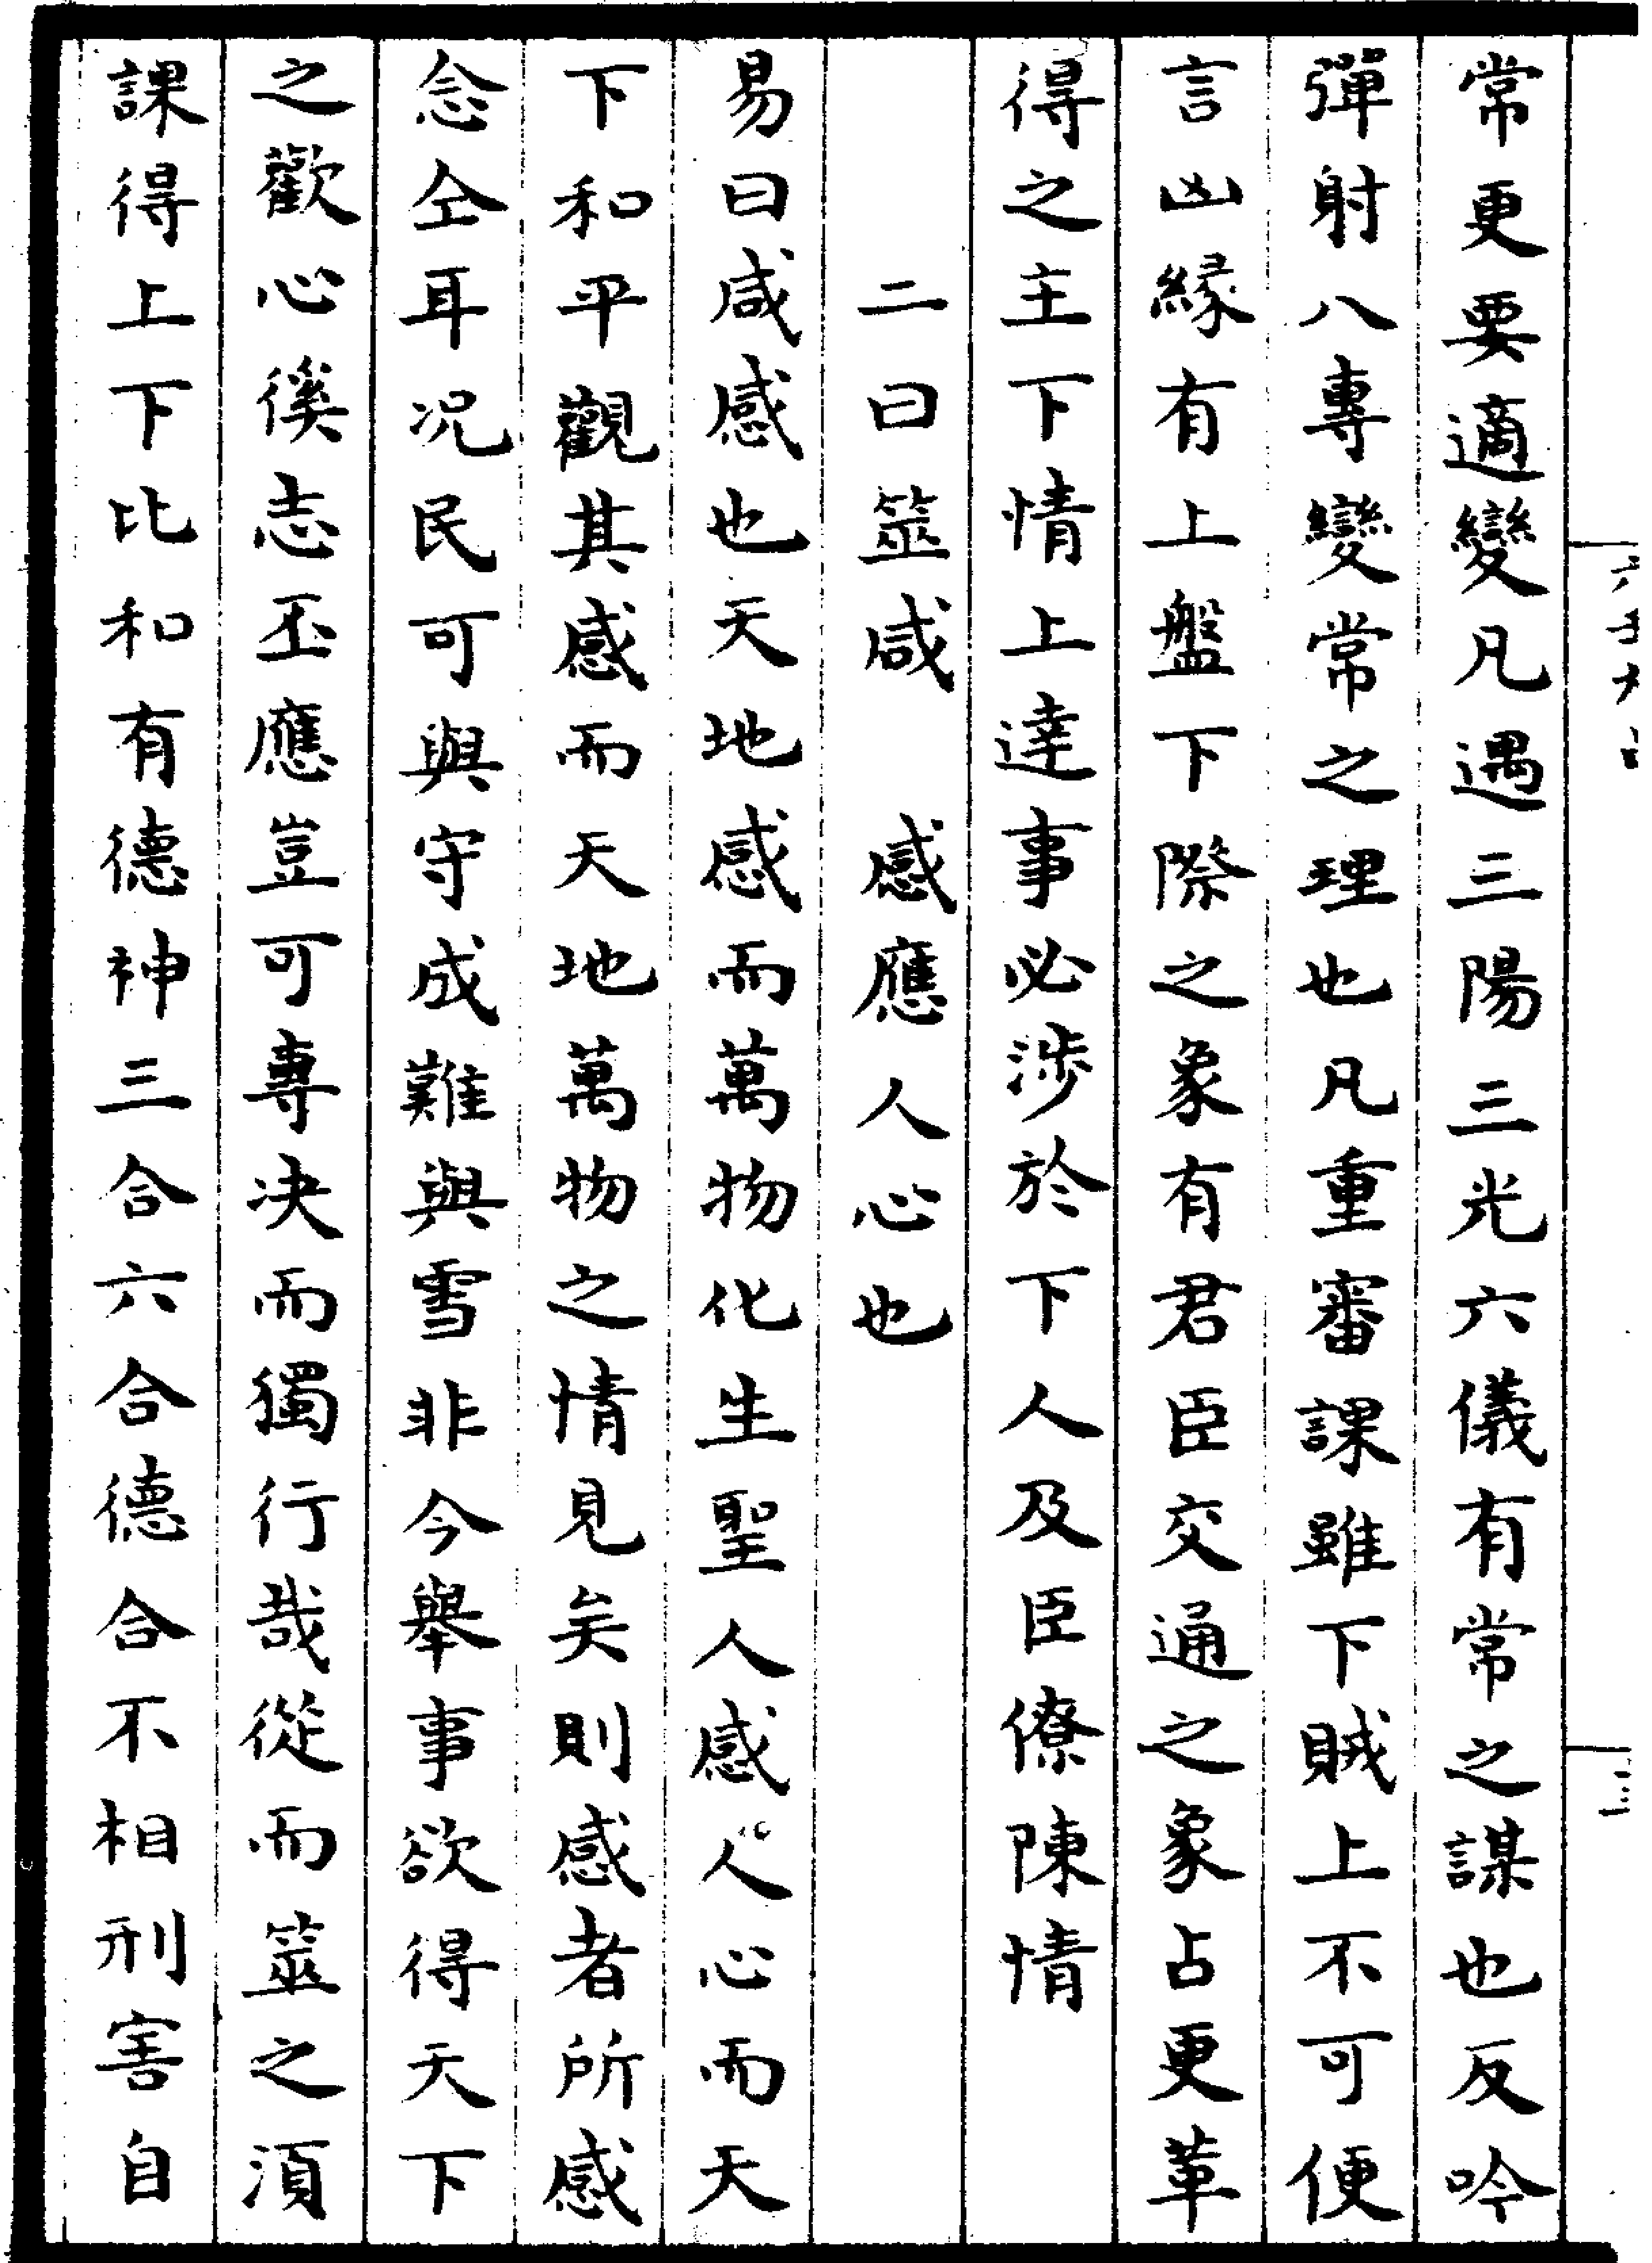 常更要適變凡遇三陽三光六儀有常之謀也反吟
彈射八專變常之理也凡重審課雖下賊上不可便
言凶緣有上盤下際之象有君臣交通之象占更革
得之主下情上達事必涉於下人及臣僚陳情
二曰筮咸　感應人心也
易曰咸感也天地感而萬物化生聖人感人心而天
下和平觀其感而天地萬物之情見矣則感者所感
念仝耳况民可與守成難與雪非今舉事欲得天下
之歡心徯志丕應豈可專决而獨行哉從而筮之須
課得上下比和有德神三合六合德合不相刑害自